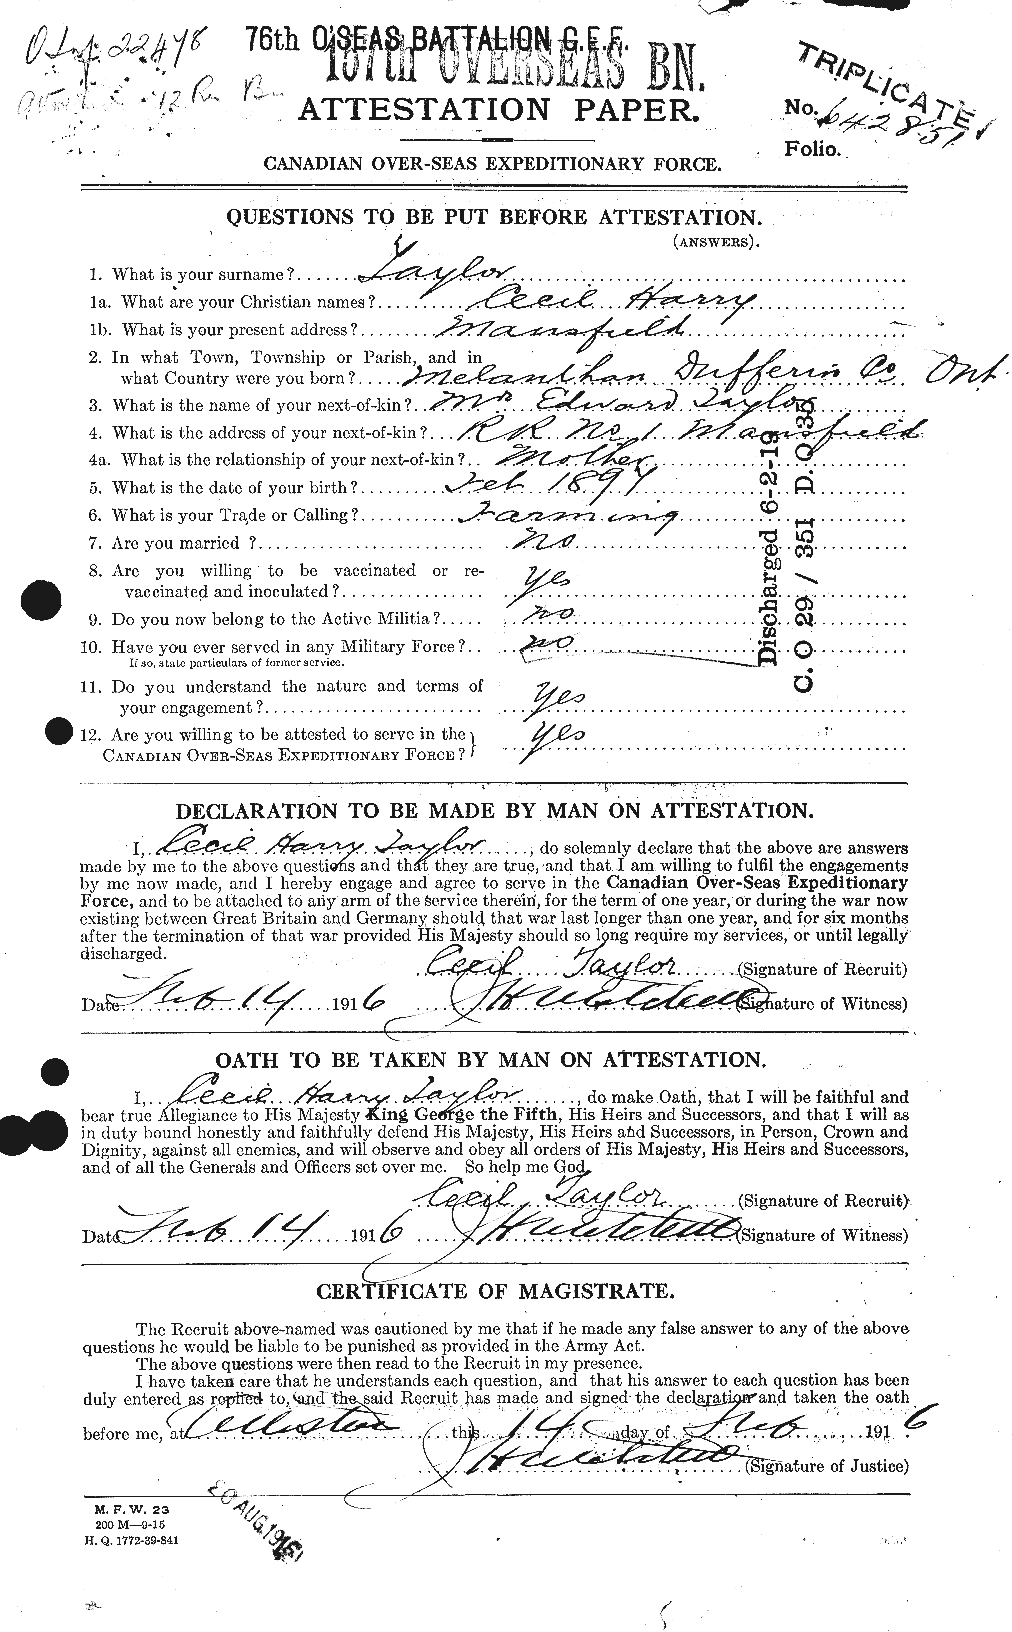 76th O'SEAS BATTALION C.E.F.
157th OVERSEAS BN.
TRIPLICATE
ATTESTATION PAPER.
No. 642851
Folio.
CANADIAN OVER-SEAS EXPEDITIONARY FORCE.
QUESTIONS TO BE PUT BEFORE ATTESTATION.
(ANSWERS).
1. What is your surname? Taylor
1a. What are your Christian names? Cecil Harry
1b. What is your present address? Mansfield
2. In what Town, Township or Parish, and in
what Country were you born? Melancthan Dufferin Co Ont
3. What is the name of your next-of-kin? Mrs Edward Taylor
4. What is the address of your next-of-kin? RR No 1 Mansfield
4a. What is the relationship of your next-of-kin? Mother
5. What is the date of your birth? Feb 1897
6. What is your Trade or Calling? Farming
7. Are you married ? no
8. Are you willing to be vaccinated or re-
vaccinated and inoculated? yes
9. Do you now belong to the Active Militia? no
10. Have you ever served in any Military Force? no
If so, state particulars of former service.
11. Do you understand the nature and terms of
your engagement? yes
12. Are you willing to be attested to serve in the
CANADIAN OVER-SEAS EXPEDITIONARY FORCE? yes
Discharged 6-2-19
C. O 29 / 351 D. O 36
DECLARATION TO BE MADE BY MAN ON ATTESTATION.
I, Cecil Harry Taylor, do solemnly declare that the above are answers
made by me to the above questions and that they are true, and that I am willing to fulfil the engagements
by me now made, and I hereby engage and agree to serve in the Canadian Over-Seas Expeditionary
Force, and to be attached to any arm of the service therein, for the term of one year, or during the war now
existing between Great Britain and Germany should that war last longer than one year, and for six months
after the termination of that war provided His Majesty should so long require my services, or until legally
discharged.
Cecil Taylor (Signature of Recruit)
Date Feb 14 1916 (Signature of Witness)
OATH TO BE TAKEN BY MAN ON ATTESTATION.
I, Cecil Harry Taylor, do make Oath, that I will be faithful and
bear true Allegiance to His Majesty King George the Fifth, His Heirs and Successors, and that I will as
in duty bound honestly and faithfully defend His Majesty, His Heirs and Successors, in Person, Crown and
Dignity, against all enemies, and will observe and obey all orders of His Majesty, His Heirs and Successors,
and of all the Generals and Officers set over me. So help me God.
Cecil Taylor (Signature of Recruit)
Date Feb 14 1916 (Signature of Witness)
CERTIFICATE OF MAGISTRATE.
The Recruit above-named was cautioned by me that if he made any false answer to any of the above
questions he would be liable to be punished as provided in the Army Act.
The above questions were then read to the Recruit in my presence.
I have taken care that he understands each question, and that his answer to each question has been
duly entered as replied to, and the said Recruit has made and signed the declaration and taken the oath
before me, at Alliston this 14 day of Feb 1916
(Signature of Justice)
M. F. W. 23
200 M—9-15
H. Q. 1772-39-841
AUG 1916